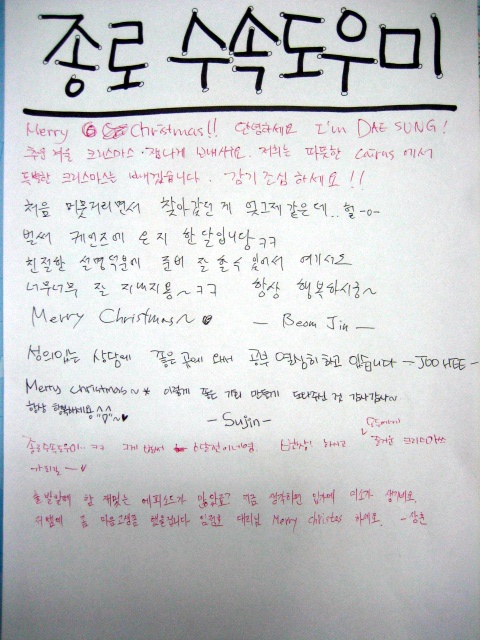 종로 수속도우미
Merry Christmas!! 안녕하세요 I'm DAE SUNG!
추운 겨울 크리스마스 잼나게 보내세요. 저희는 따뜻한 Cairns 에서
특별한 크리스마스를 보내겠습니다. 감기 조심 하세요!!
처음 머뭇거리면서 찾아갔던 게 엊그제 같은데.. 헐 -o-
벌써 케언즈에 온지 한 달입니다 ㅋㅋ
친절한 설명덕분에 준비 잘 할 수 있어서 여기서도
너무너무 잘 지내지용~ㅋㅋ 항상 행복하시궁~
Merry Christmas~ ♥ - Beom Jin -
성의있는 상담에 좋은 곳에 와서 공부 열심히 하고 있습니다 - JOO HEE -
Merry christmas~* 이렇게 좋은 기회 만들게 도와주신 것 감사감사~
항상 행복하세용^^~♥ - Sujin -
종로수속도우미.. ㅋㅋ 하시고 즐거운 크리스마스
출발전에 참 재밌는 에피소드가 많았고 지금 생각하면 입가에 미소가 생기네요.
저 땜에 좀 마음고생좀 했을겁니다 대리님 Merry Christmas 하세요.